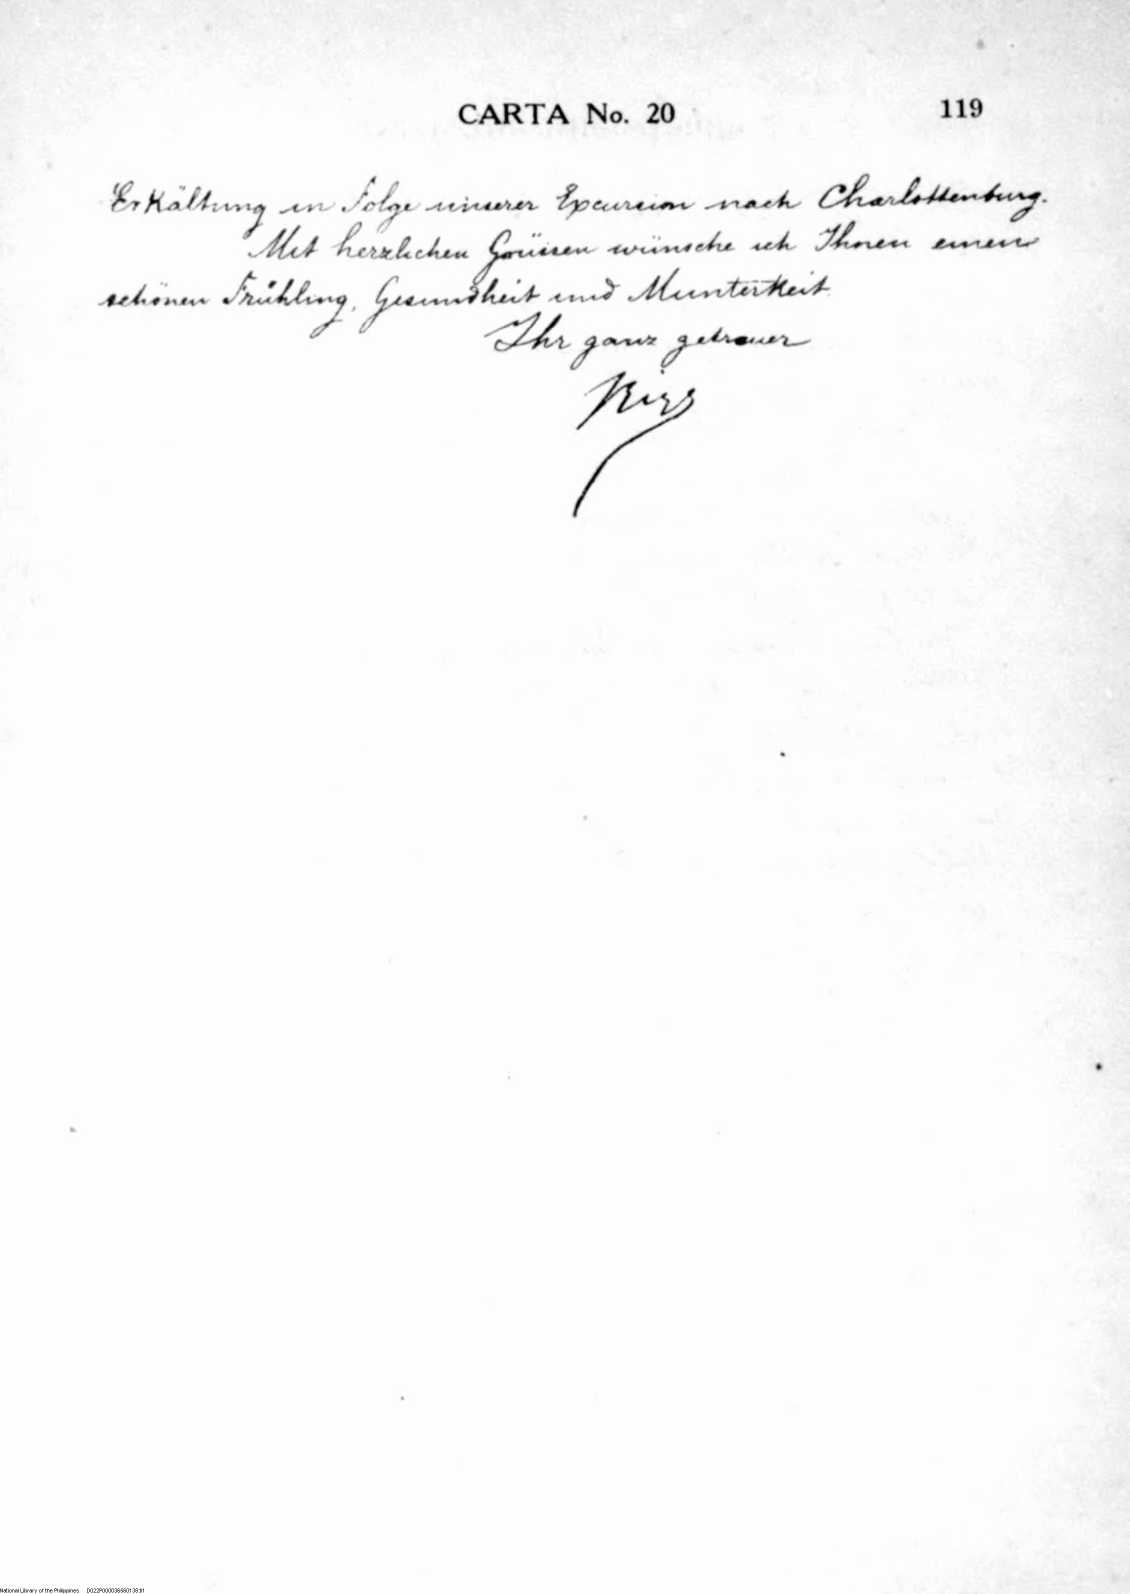 CARTA No. 20
119
Erkältung in Folge unserer Excursion nach Charlottenburg.
Mit herzlichen Grüssen wünsche ich Ihnen einen
schönen Frühling, Gesundheit und Munterkeit.
Ihr ganz getreuer
Rizal
National Library of the Philippines